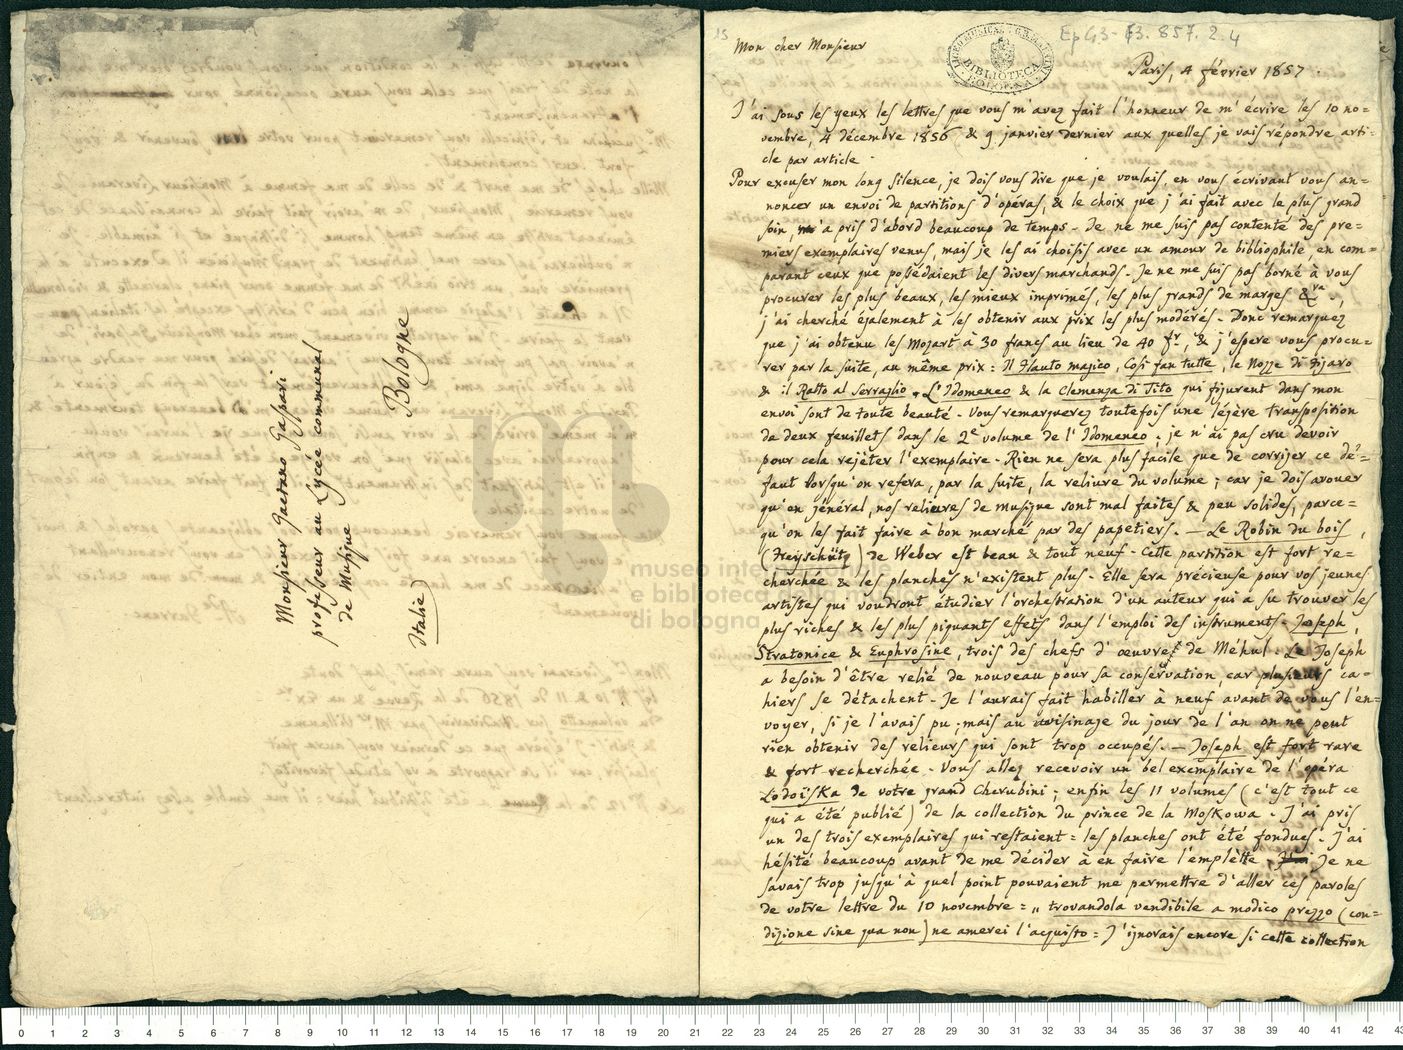 Monsieur Gaetano Gaspari
professeur au Lycée communal
de Musique
Bologne
(Italie)
museo internazionale
e biblioteca della musica
di bologna
15
Ep G3-13.857.2.4
LICEO MUSICALE
BIBLIOTECA
BOLOGNA
Mon cher Monsieur
Paris, 4 février 1857.
J'ai sous les yeux les lettres que vous m'avez fait l'honneur de m'écrire les 10 no=
vembre, 4 décembre 1856 & 9 janvier dernier aux quelles je vais répondre arti-
cle par article.
Pour excuser mon long silence, je dois vous dire que je voulais, en vous écrivant vous an-
noncer un envoi de partitions d'opéras, & le choix que j'ai fait avec le plus grand
soin, m'a pris d'abord beaucoup de temps. Je ne me suis pas contenté des pre-
miers exemplaires venus, mais je les ai choisis avec un amour de bibliophile, en com=
parant ceux que possédaient les divers marchands. Je ne me suis pas borné à vous
procurer les plus beaux, les mieux imprimés, les plus grands de marges &ra.,
j'ai cherché également à les obtenir aux prix les plus modérés. Donc remarquez
que j'ai obtenu les Mozart à 30 francs au lieu de 40 fr, & j'espere vous procu-
rer par la suite, au même prix: Il Flauto magico, Cosi fan tutte, le Nozze di Figaro
& il Ratto al Serraglio. L'Idomeneo & la Clemenza di Tito qui figurent dans mon
envoi sont de toute beauté. Vous remarquerez toutefois une légère transposition
de deux feuillets dans le 2e volume de l'Idomeneo; je n'ai pas cru devoir
pour cela rejeter l'exemplaire. Rien ne sera plus facile que de corriger ce dé-
faut lorsqu'on refera, par la suite, la reliure du volume; car je dois avouer
qu'en général, nos relieures de musique sont mal faites & peu solides, parce-
qu'on les fait faire à bon marché par des papetiers. — Le Robin du bois,
(Freyschütz) de Weber est beau & tout neuf. Cette partition est fort re-
cherchée & les planches n'existent plus. Elle sera précieuse pour vos jeunes
artistes qui voudront étudier l'orchestration d'un auteur qui a su trouver les
plus riches & les plus piquants effets dans l'emploi des instruments. Joseph,
Stratonice & Euphrosine, trois des chefs d'oeuvre de Méhul. Le Joseph
a besoin d'être relié de nouveau pour sa conservation, car plusieurs ca-
hiers se détachent. Je l'aurais fait habiller à neuf avant de vous l'en-
voyer, si je l'avais pu; mais au avisinage du jour de l'an on ne peut
rien obtenir des relieurs qui sont trop occupés. — Joseph est fort rare
& fort recherchée. Vous allez recevoir un bel exemplaire de l'opéra
Lodoïska de votre grand Cherubini; enfin les 11 volumes (c'est tout ce
qui a été publié) de la collection du prince de la Moskowa. J'ai pris
un des trois exemplaires qui restaient = les planches ont été fondues. J'ai
hésité beaucoup avant de me décider à en faire l'emplette. Je ne
savais trop jusqu'à quel point pouvaient me permettre d'aller ces paroles
de votre lettre du 10 novembre = „ trovandola vendibile a modico prezzo (con=
dizione sine qua non) ne amerei l'acquisto = J'ignorais encore si cette collection